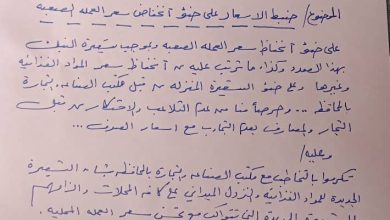 الموضوع / ضبط الاسعار على ضوء انخفاض سعر العمله الصعبه
على ضوء انخفاض سعر العمله الصعبه بموجب تسعيرة البنك
بهذا الصدد وكذا ما ترتب عليه من انخفاض سعر المواد الغذائية
وغيرها وعلى ضوء التسعيرة المنزله من قبل مكتب الصناعه والتجارة
بالمحافظه .. وحرصاً منا من عدم التلاعب والاحتكار من قبل
التجار والمصارف بعدم التجاوب مع اسعار الصرف ...
وعليه /
تكرموا بالتخاطب مع مكتب الصناعه والتجارة بالمحافظه بشأن التسعيرة
الجديدة للمواد الغذائية والنزول الميداني على كافة المحلات والزامهم
الجديدة التي تتواكب مع تحسن سعر العمله المحليه .